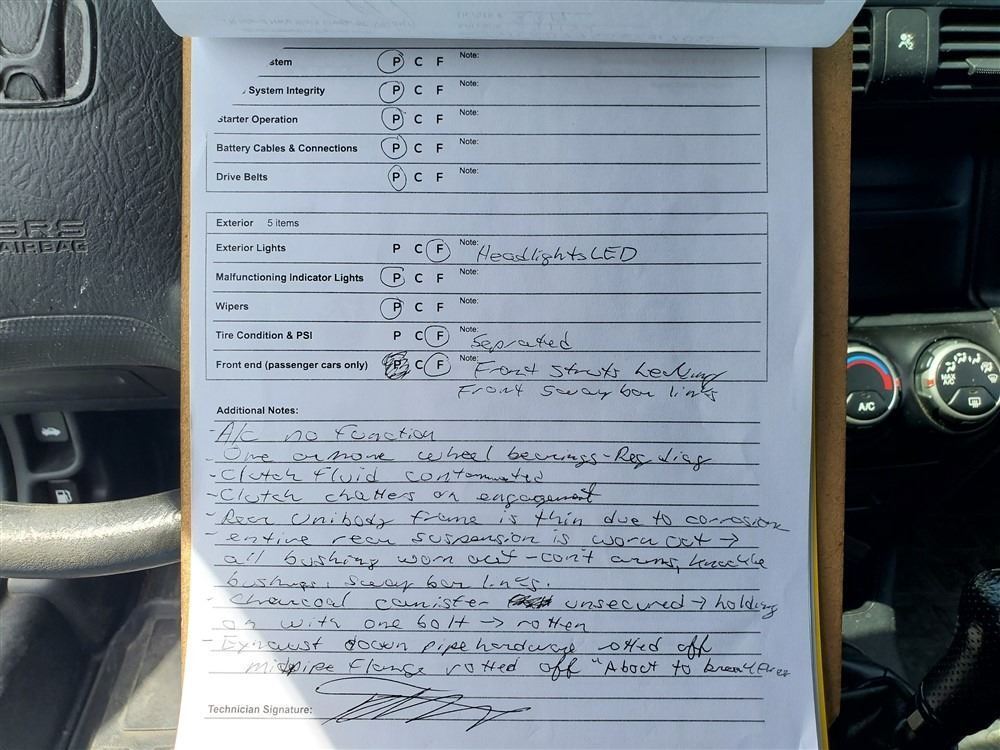 stem P C F Note:
System Integrity P C F Note:
Starter Operation P C F Note:
Battery Cables & Connections P C F Note:
Drive Belts P C F Note:
Exterior 5 items
Exterior Lights P C F Note: Headlights LED
Malfunctioning Indicator Lights P C F Note:
Wipers P C F Note:
Tire Condition & PSI P C F Note: Seprated
Front end (passenger cars only) P C F Note: Front Struts Leaking
Front Sway bar links
Additional Notes:
- A/c no function
- One or more wheel bearings - Req diag
- Clutch fluid contamnated
- Clutch chatters on engagement
- Rear Unibody frame is thin due to corrosion
- entire rear suspension is worn out →
all bushing worn out - cont arms, knuckle
bushings, sway bar links.
- Charcoal canister unsecured → holding
on with one bolt → rotten
- Exhaust down pipe hardware rotted off
midpipe flange rotted off "About to break free
Technician Signature:
SRS
AIRBAG
A/C
MAX A/C